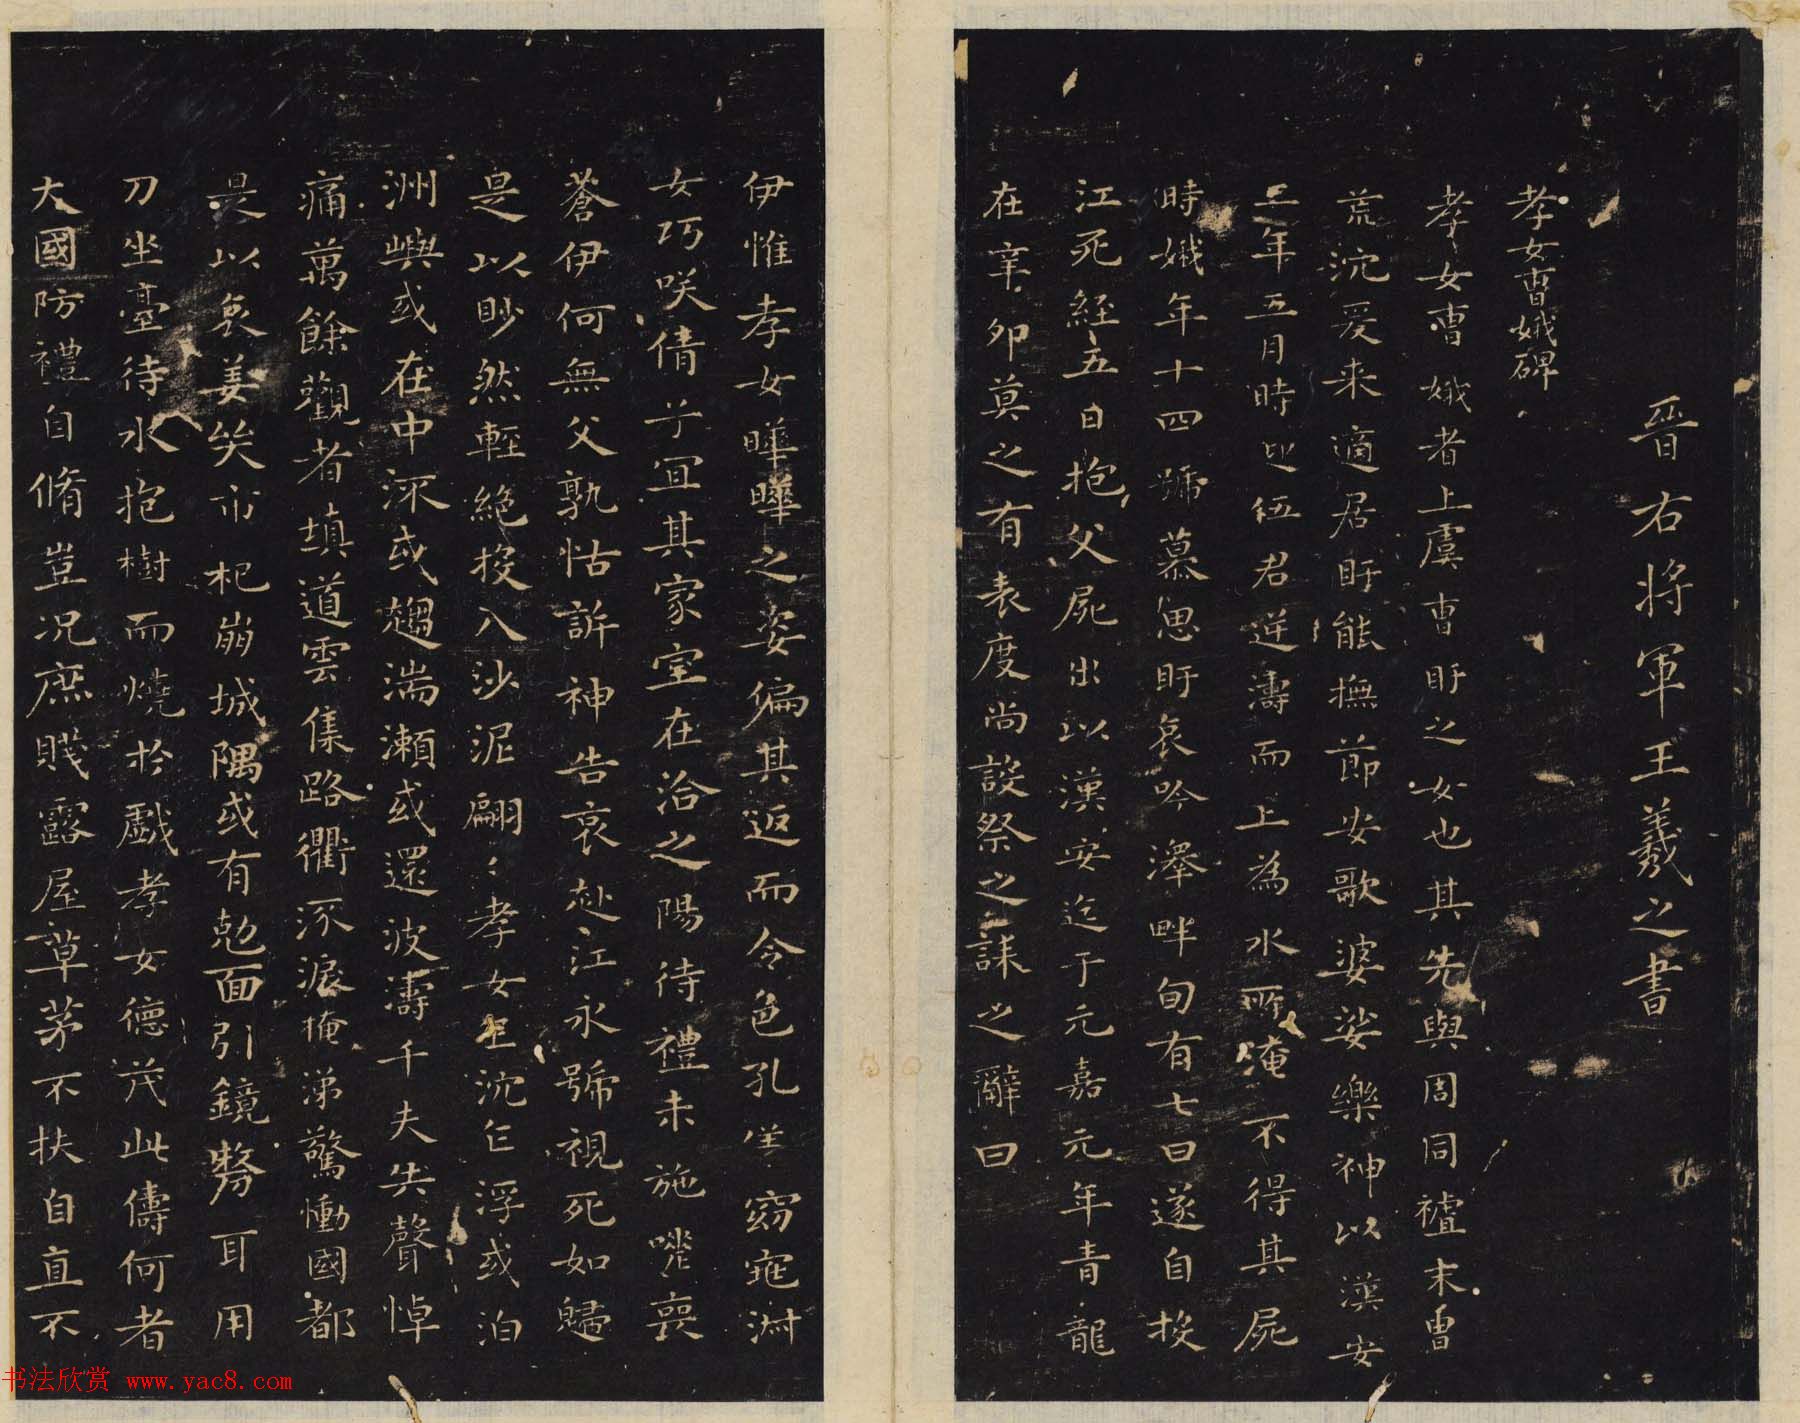 晉右將軍王羲之書
孝女曹娥碑
孝女曹娥者上虞曹盱之女也其先與周同祖末曹
荒沉爰来適居盱能撫節安歌婆娑樂神以漢安
二年五月時迎伍君逆濤而上為水所淹不得其屍
時娥年十四號慕思盱哀吟澤畔旬有七日遂自投
江死經五日抱父屍出以漢安迄于元嘉元年青龍
在辛卯莫之有表度尚設祭之誄之辭曰
伊惟孝女曄曄之姿偏其返而令色孔儀窈窕淑
女巧咲倩兮宜其家室在洽之陽待禮未施嗟喪
蒼伊何無父孰怙訴神告哀赴江永號視死如歸
是以眇然輕絕投入沙泥翩〻孝女乍沈乍浮或泊
洲嶼或在中流或趨湍瀬或還波濤千夫失聲悼
痛萬餘觀者填道雲集路衢流淚掩涕驚慟國都
是以哀姜哭市杞崩城隅或有勊面引鏡剺耳用
刀坐臺待水抱樹而燒於戲孝女德茂此儔何者
大國防禮自脩豈況庶賤露屋草茅不扶自直不
书法欣赏 www.yac8.com